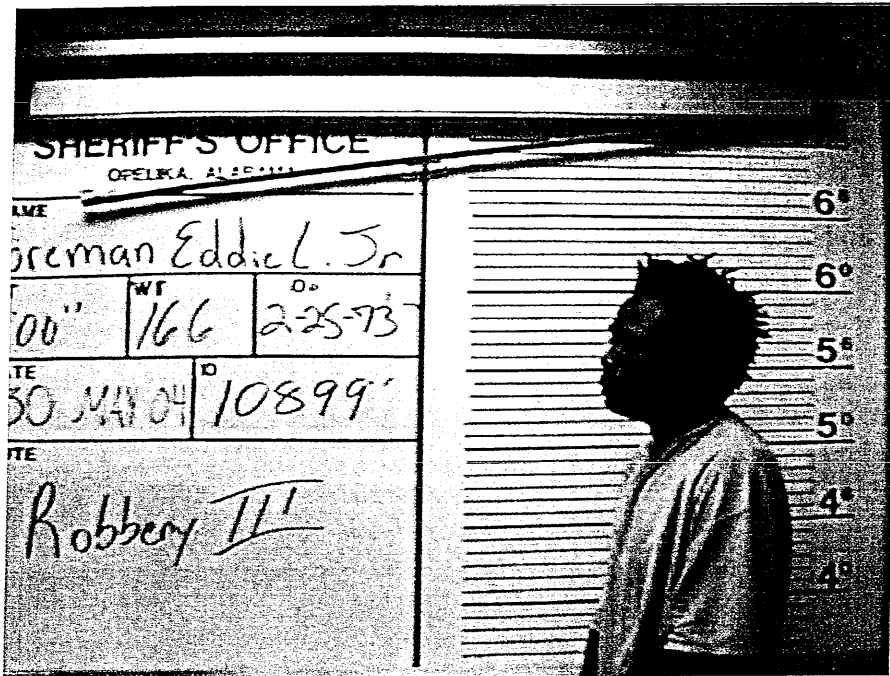 SHERIFF'S OFFICE
OPELIKA, ALABAMA
AME
oreman Eddie L. Jr
T WT
'00" 166 2-25-73
ATE ID
30 MAY 04 10899
OTE
Robbery III
6⁶
6⁰
5⁶
5⁰
4⁶
4⁰